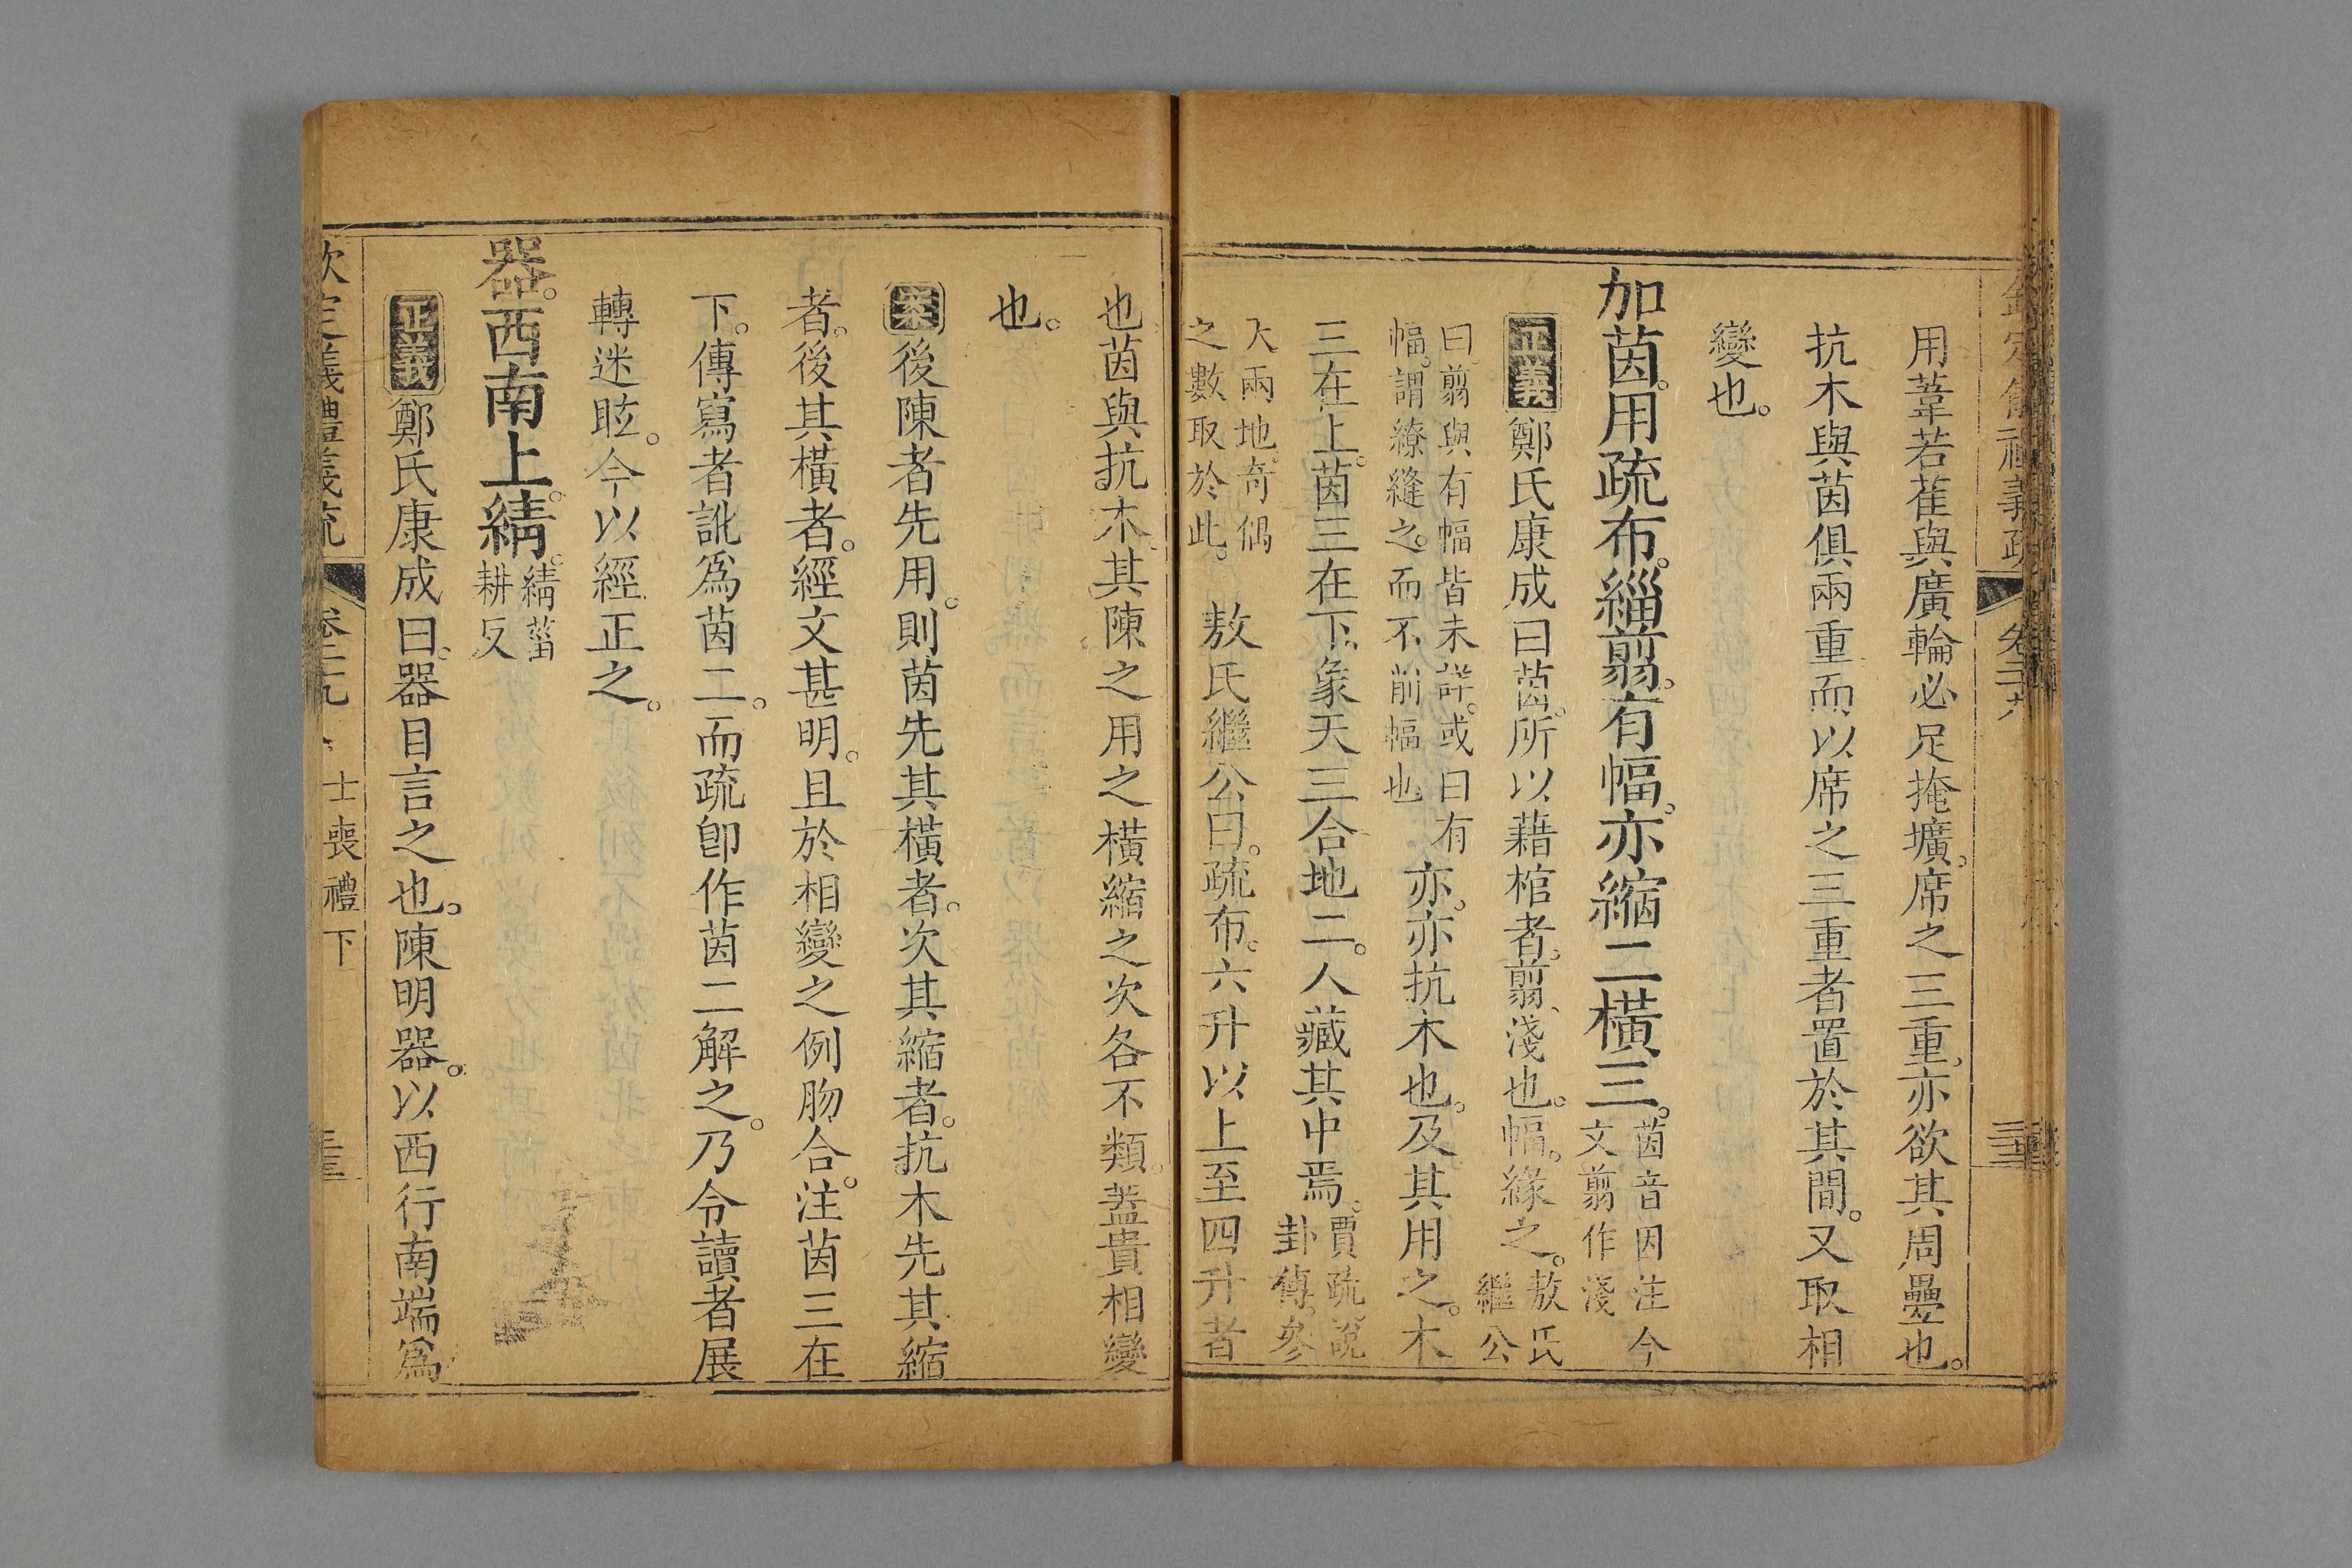 用葦若萑與廣輪必足掩壙。席之三重。亦欲其周疊也。
抗木與茵俱兩重而以席之三重者置於其間。又取相
變也。
加茵。用疏布。緇翦。有幅。亦縮二橫三。茵音因注今文翦作淺
正義鄭氏康成曰茵。所以藉棺者。翦、淺也。幅。緣之。敖氏繼公
曰翦與有幅皆未詳。或曰有幅。謂繚縫之。而不削幅也亦。亦抗木也。及其用之。木
三在上。茵三在下。象天三合地二。人藏其中焉。賈疏說卦傳。參
天兩地。奇偶之數取於此。 敖氏繼公曰。疏布。六升以上至四升者
也。茵與抗木。其陳之用之橫縮之次各不類。蓋貴相變
也。
案後陳者先用。則茵先其橫者。次其縮者。抗木先其縮
者。後其橫者。經文甚明。且於相變之例脗合。注茵三在
下。傳寫者訛爲茵二。而疏卽作茵二解之。乃令讀者展
轉迷眩。今以經正之。
器。西南上。綪。綪菑耕反
正義鄭氏康成曰。器目言之也。陳明器。以西行南端爲
欽定儀禮義疏 卷二十九 士喪禮下